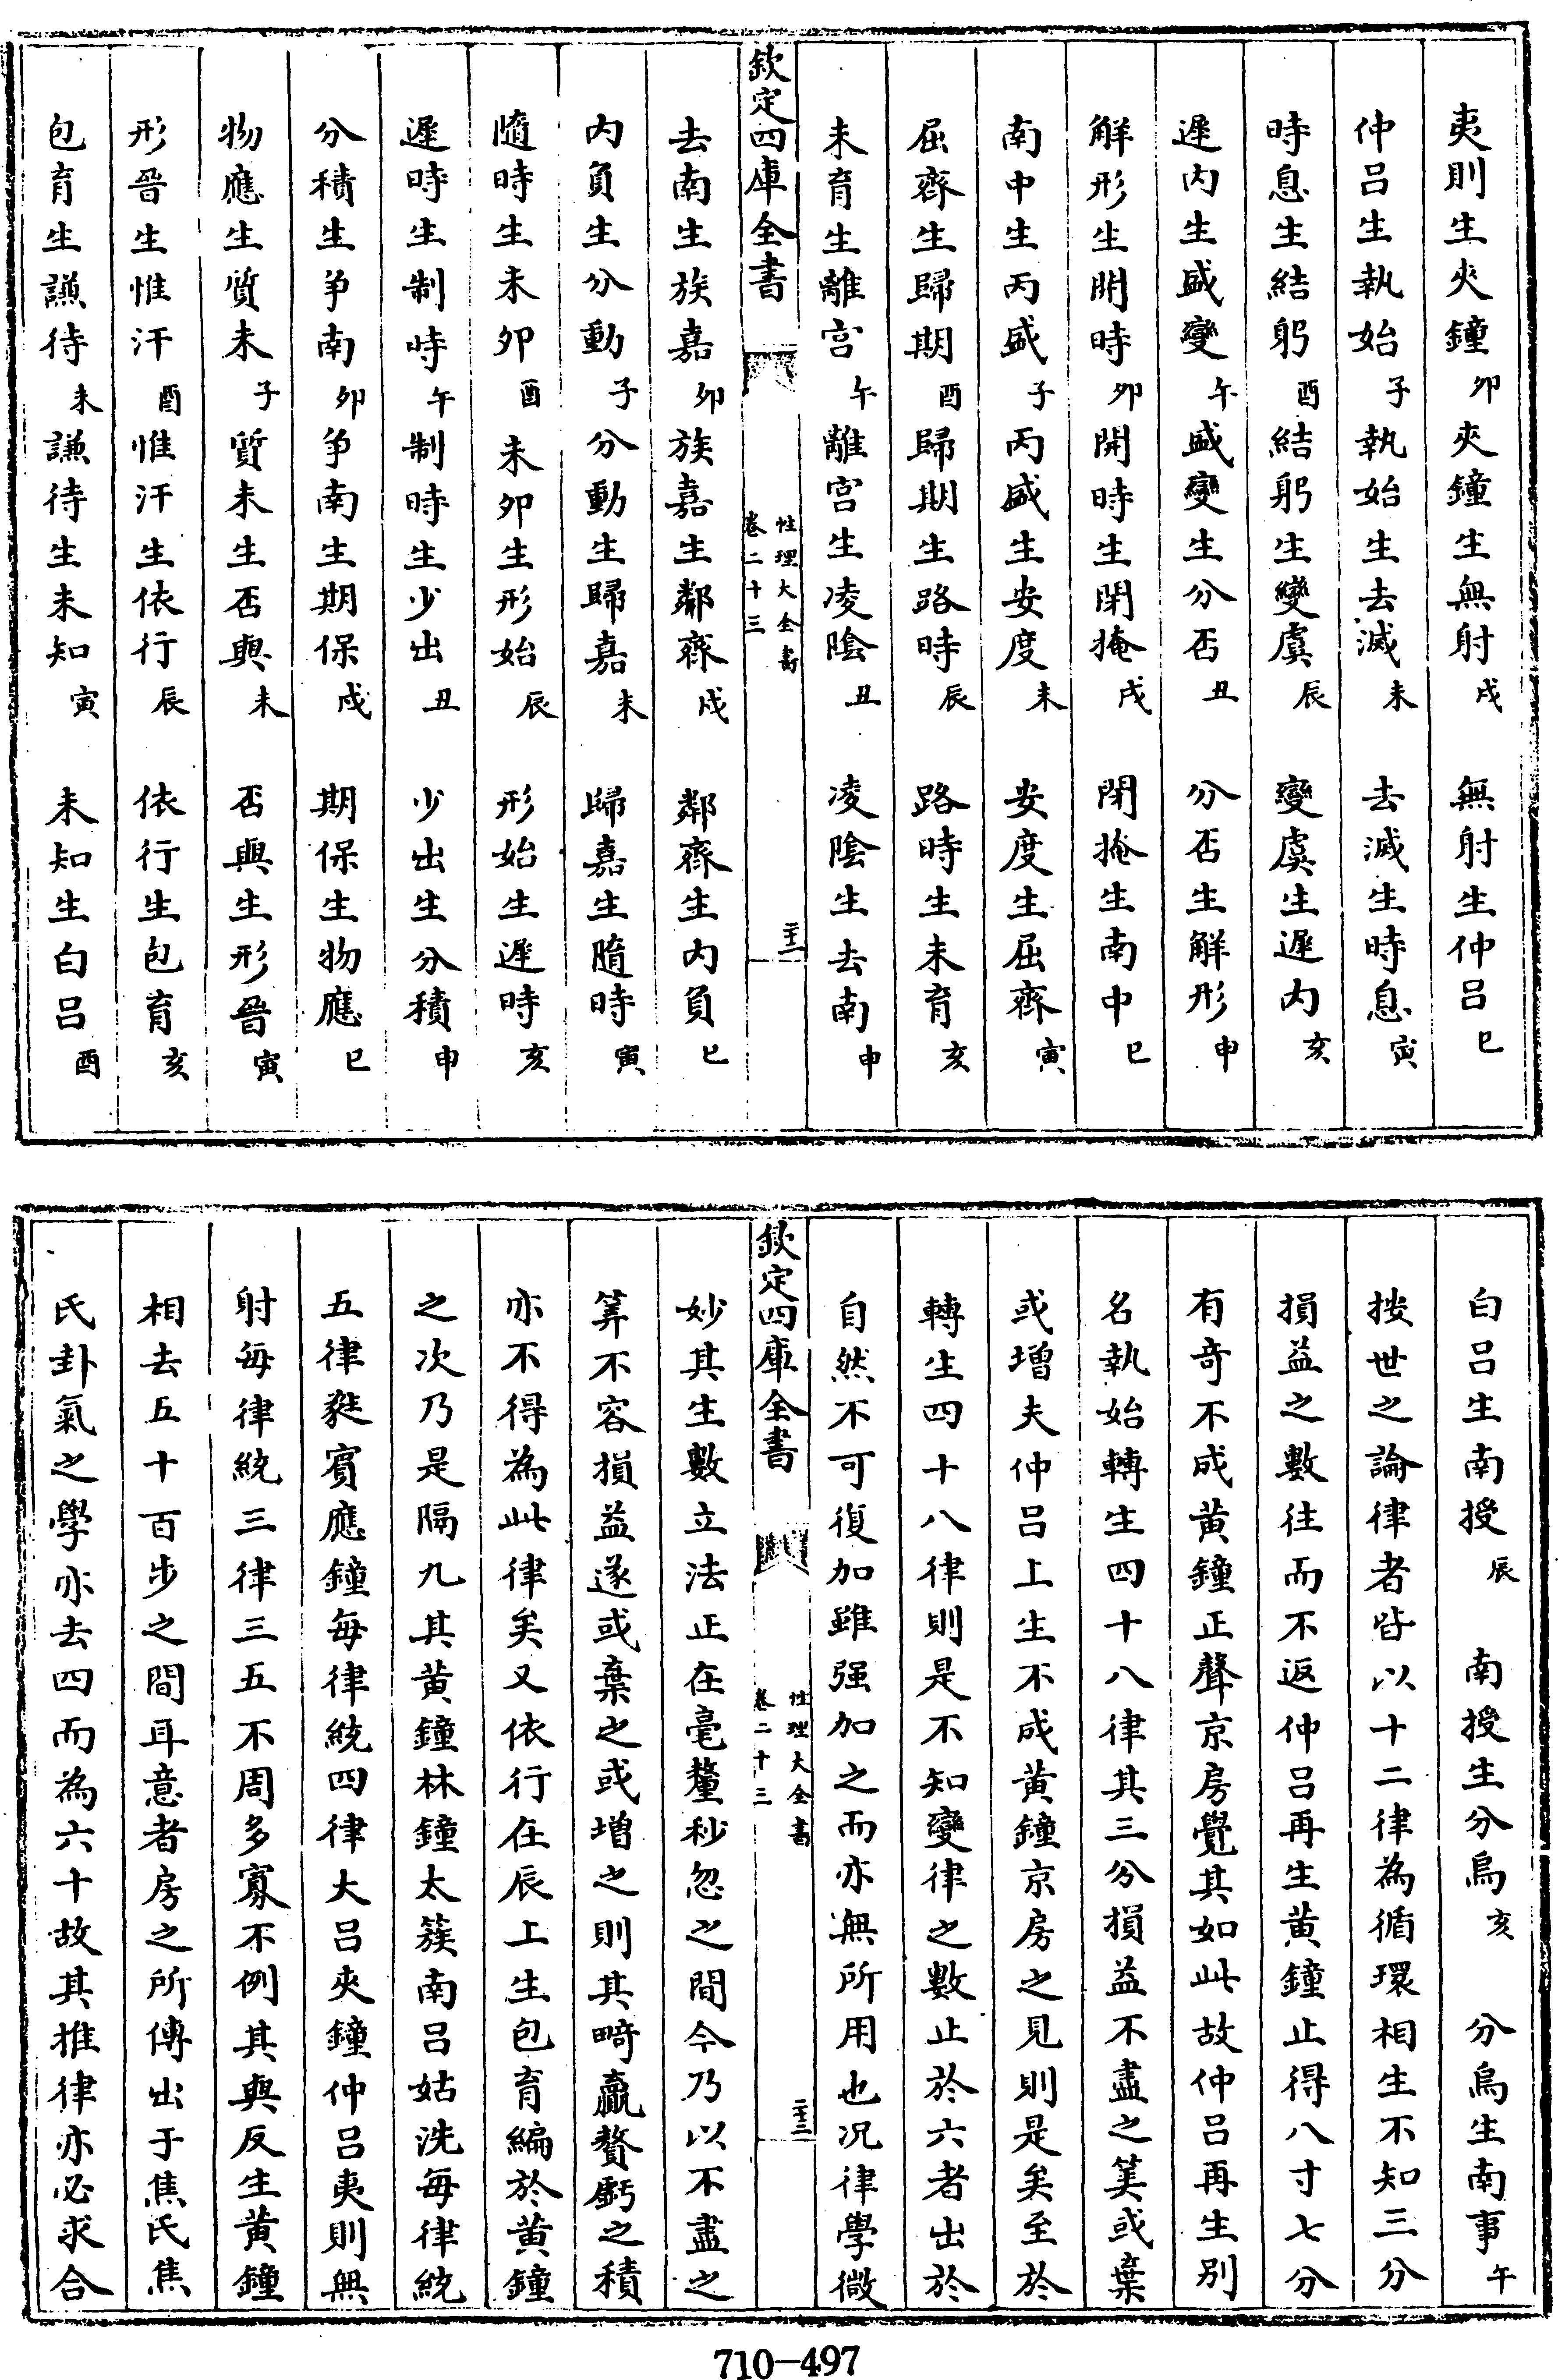 夷則生夾鐘卯夾鐘生無射戌 無射生仲呂巳
仲呂生執始子執始生去滅未 去滅生時息寅
時息生結躬酉結躬生變虞辰 變虞生遲內亥
遲內生盛變午盛變生分否丑 分否生解形申
解形生開時卯開時生閉掩戌 閉掩生南中巳
南中生丙盛子丙盛生安度未 安度生屈齊寅
屈齊生歸期酉歸期生路時辰 路時生未育亥
未育生離宮午離宮生凌陰丑 凌陰生去南申
欽定四庫全書
性理大全書
卷二十三
二十二
去南生族嘉卯族嘉生鄰齊戌 鄰齊生內負巳
內負生分動子分動生歸嘉未 歸嘉生隨時寅
隨時生未卯酉未卯生形始辰 形始生遲時亥
遲時生制時午制時生少出丑 少出生分積申
分積生爭南卯爭南生期保戌 期保生物應巳
物應生質未子質未生否與未 否與生形晉寅
形晉生惟汗酉惟汗生依行辰 依行生包育亥
包育生謙待未謙待生未知寅 未知生白呂酉
白呂生南授辰 南授生分烏亥 分烏生南事午
按世之論律者皆以十二律為循環相生不知三分
損益之數往而不返仲呂再生黃鐘止得八寸七分
有奇不成黃鐘正聲京房覺其如此故仲呂再生別
名執始轉生四十八律其三分損益不盡之筭或棄
或增夫仲呂上生不成黃鐘京房之見則是矣至於
轉生四十八律則是不知變律之數止於六者出於
自然不可復加雖强加之而亦無所用也况律學微
欽定四庫全書
性理大全書
卷二十三
二十三
妙其生數立法正在毫釐秒忽之間今乃以不盡之
筭不容損益遂或棄之或增之則其畸贏贅虧之積
亦不得為此律矣又依行在辰上生包育編於黃鐘
之次乃是隔九其黃鐘林鐘太簇南呂姑洗每律統
五律蕤賓應鐘每律統四律大呂夾鐘仲呂夷則無
射每律統三律三五不周多寡不例其與反生黃鐘
相去五十百步之間耳意者房之所傳出于焦氏焦
氏卦氣之學亦去四而為六十故其推律亦必求合
710-497